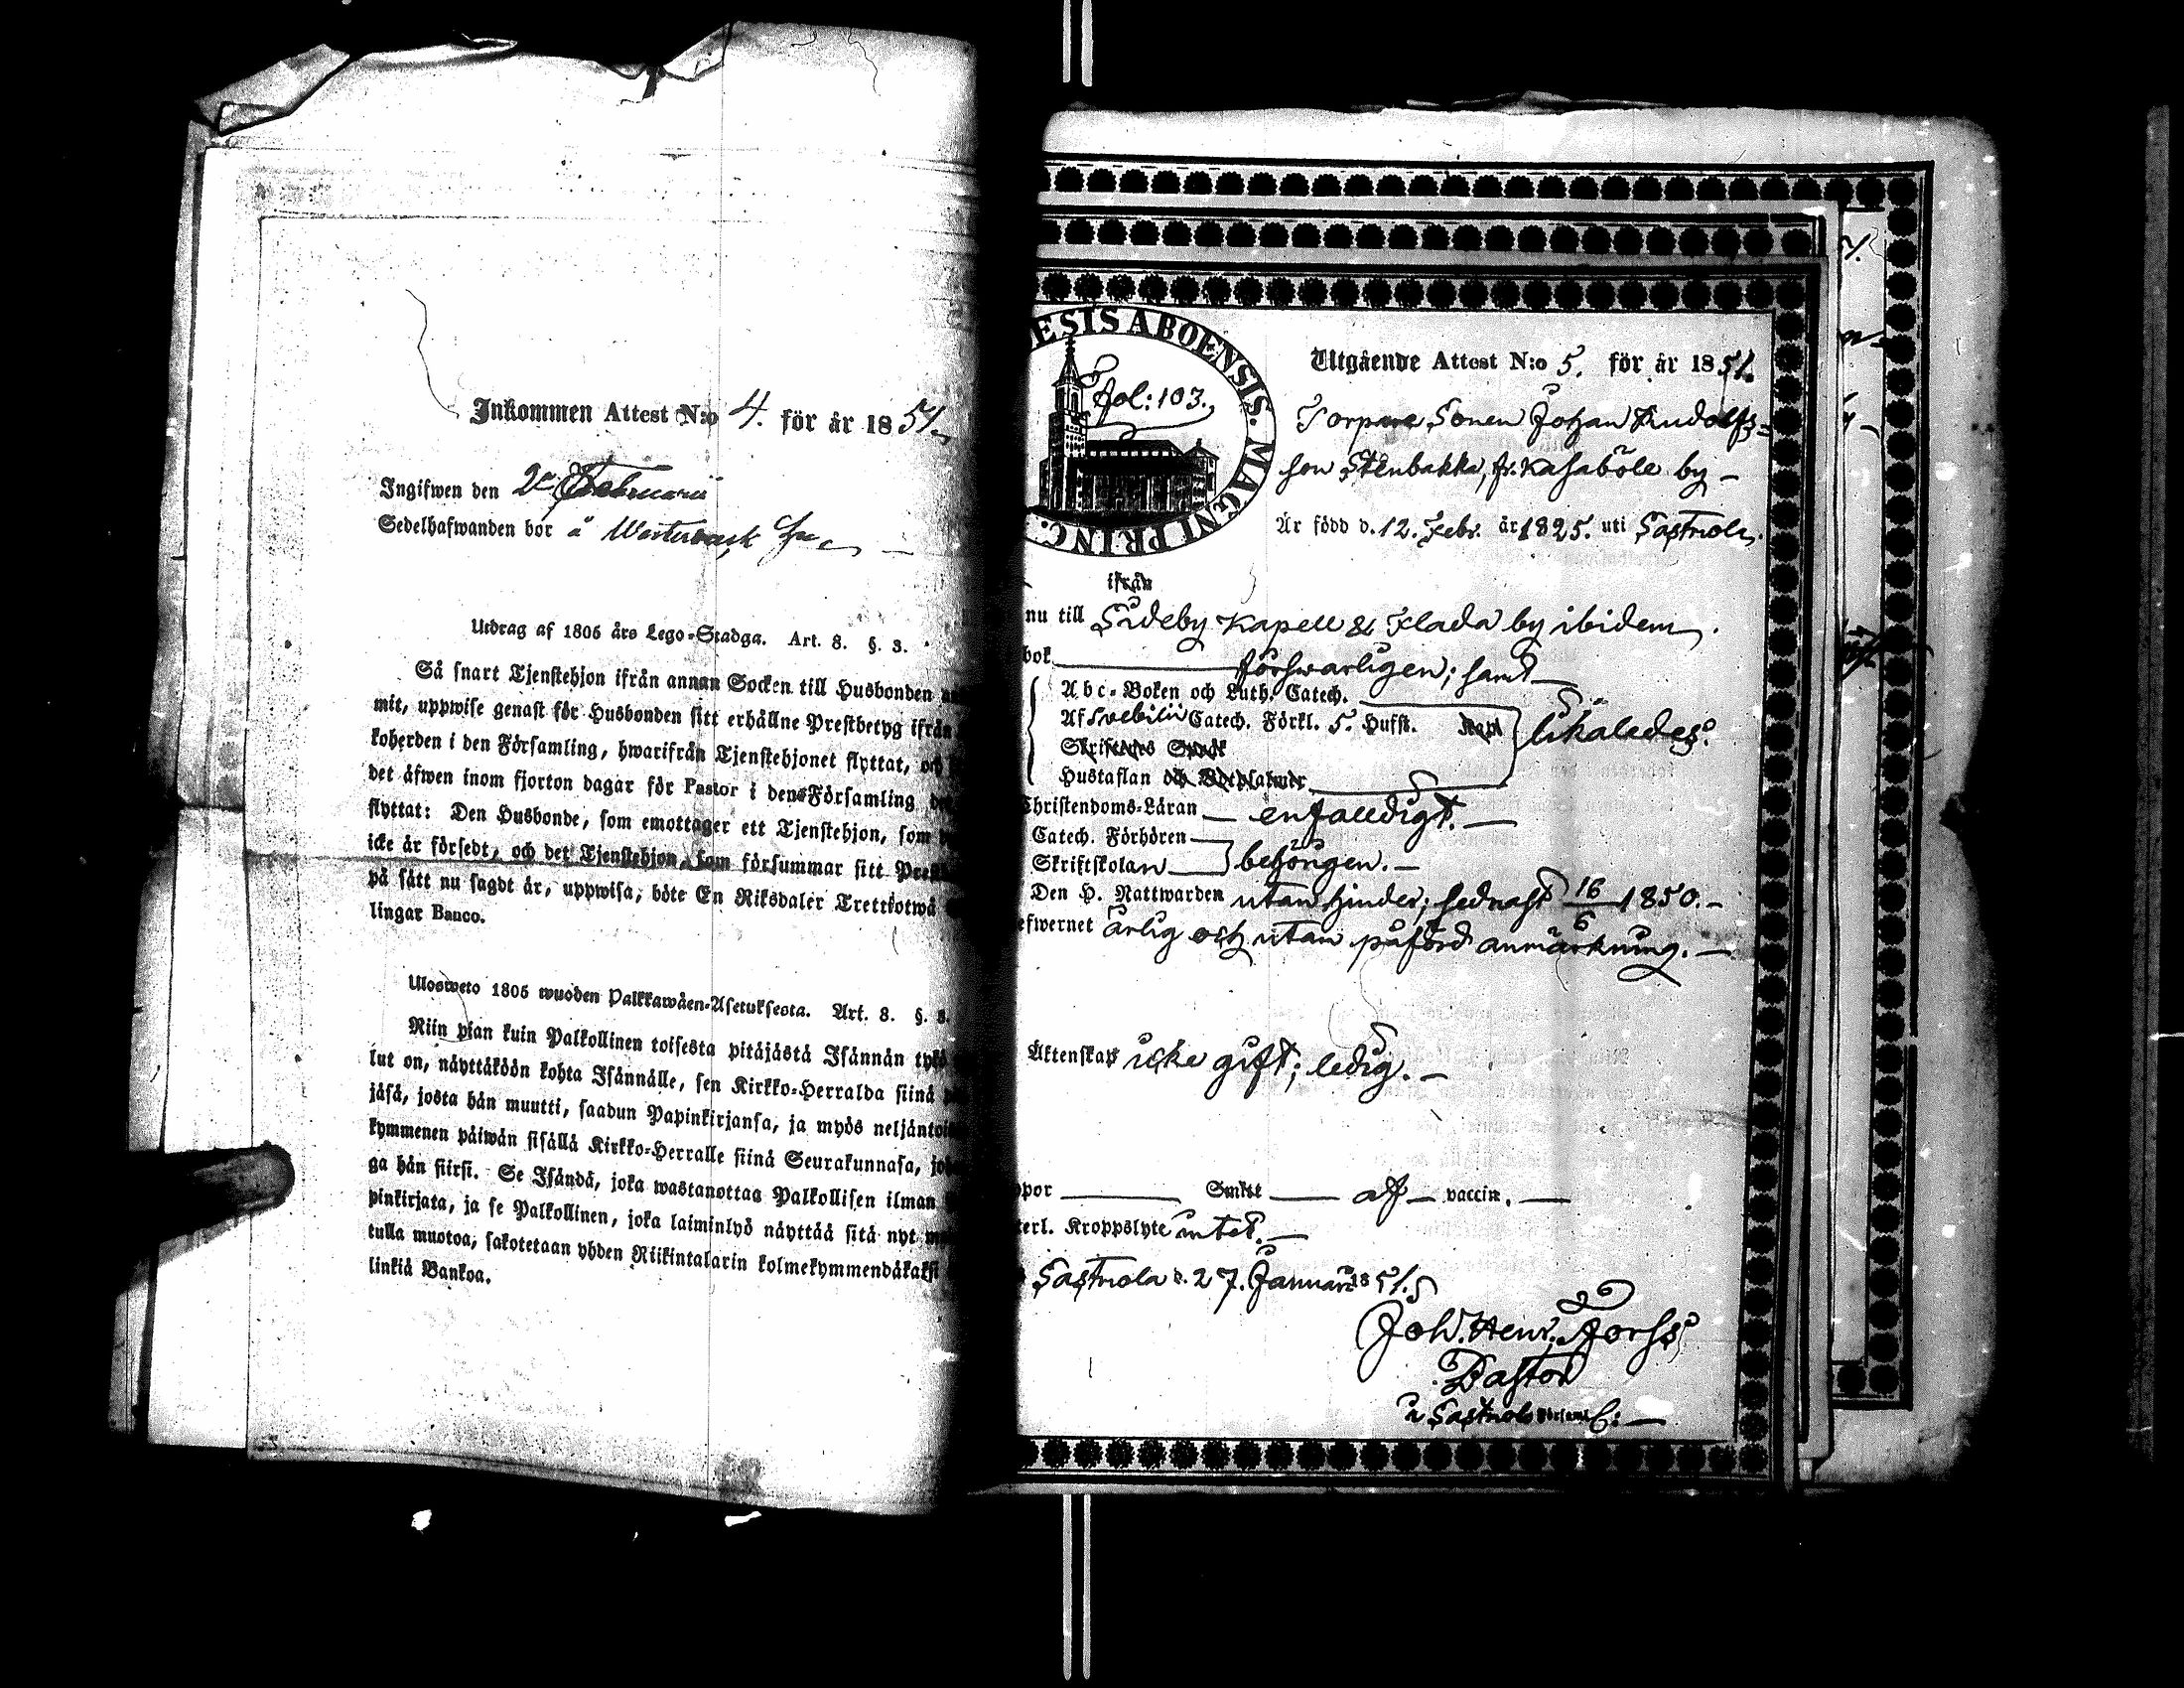 Inkommen Attest N:o 4. för år 1851.
Ingifwen den 2a Februarii
Sedelhafwanden bor å
Utdrag af 1805 års Lego-Stadga. Art. 8. §. 3.
Så snart Tjenstehjon ifrån annan Socken till Husbonden
mit, uppwise genast för Husbonden sitt erhållne Prestbetyg ifrån
koherden i den Församling, hwarifrån Tjenstehjonet flyttat, och
det äfwen inom fjorton dagar för Pastor i den Församling
flyttat: Den Husbonde, som emottager ett Tjenstehjon, som
icke är försedt, och det Tjenstehjon, som försummar sitt
på sätt nu sagdt är, uppwisa, böte En Riksdaler Trettiotwå
lingar Banco.
Ulosweto 1805 wuoden Palkkawäen-Asetuksesta. Art. 8. §. 3.
Niin pian kuin Palkollinen toisesta pitäjästä Isännän tykö
lut on, näyttäköön kohta Isännälle, sen Kirkko-Herralda siinä
jäsä, josta hän muutti, saadun Papinkirjansa, ja myös
kymmenen päiwän sisällä Kirkko-Herralle siinä Seurakunnasa,
ga hän siirsi. Se Isändä, joka wastanottaa Palkollisen ilman
pinkirjata, ja se Palkollinen, joka laiminlyö näyttää sitä nyt
tulla muotoa, sakotetaan yhden Riikintalarin kolmekymmendäkaksi
linkiä Bankoa.
ESIS ABOENSIS. MAGNI PRINC.
fol: 103.
Utgående Attest N:o 5. för år 1851.
Torpare Sonen Johan Rudolfs=
son Stenbakka, fr. Kasaböle by
Är född d. 12. Febr. år 1825. uti Sastmola.
ifrån
nu till Sideby Kapell & Flada by ibidem.
bok försvarligen; samt
Abc-Boken och Luth. Catech.
Af Svebilii Catech. Förkl. 5. Hufst. likaledes.
Hustaflan
Christendoms-Läran enfaldigt.
Catech. Förhören
Skriftskolan behörigen.
Den H. Nattwarden utan hinder; sednast 16/6 1850.
efwernet ärlig och utan påförd anmärkning.
Äktenskap icke gift; ledig.
ppor Smitt af vaccin.
terl. Kroppslyte intet.
Sastmola d. 27. Januarii 1851.
Joh. Henr. Forss
Pastor
i Sastmola Församl.